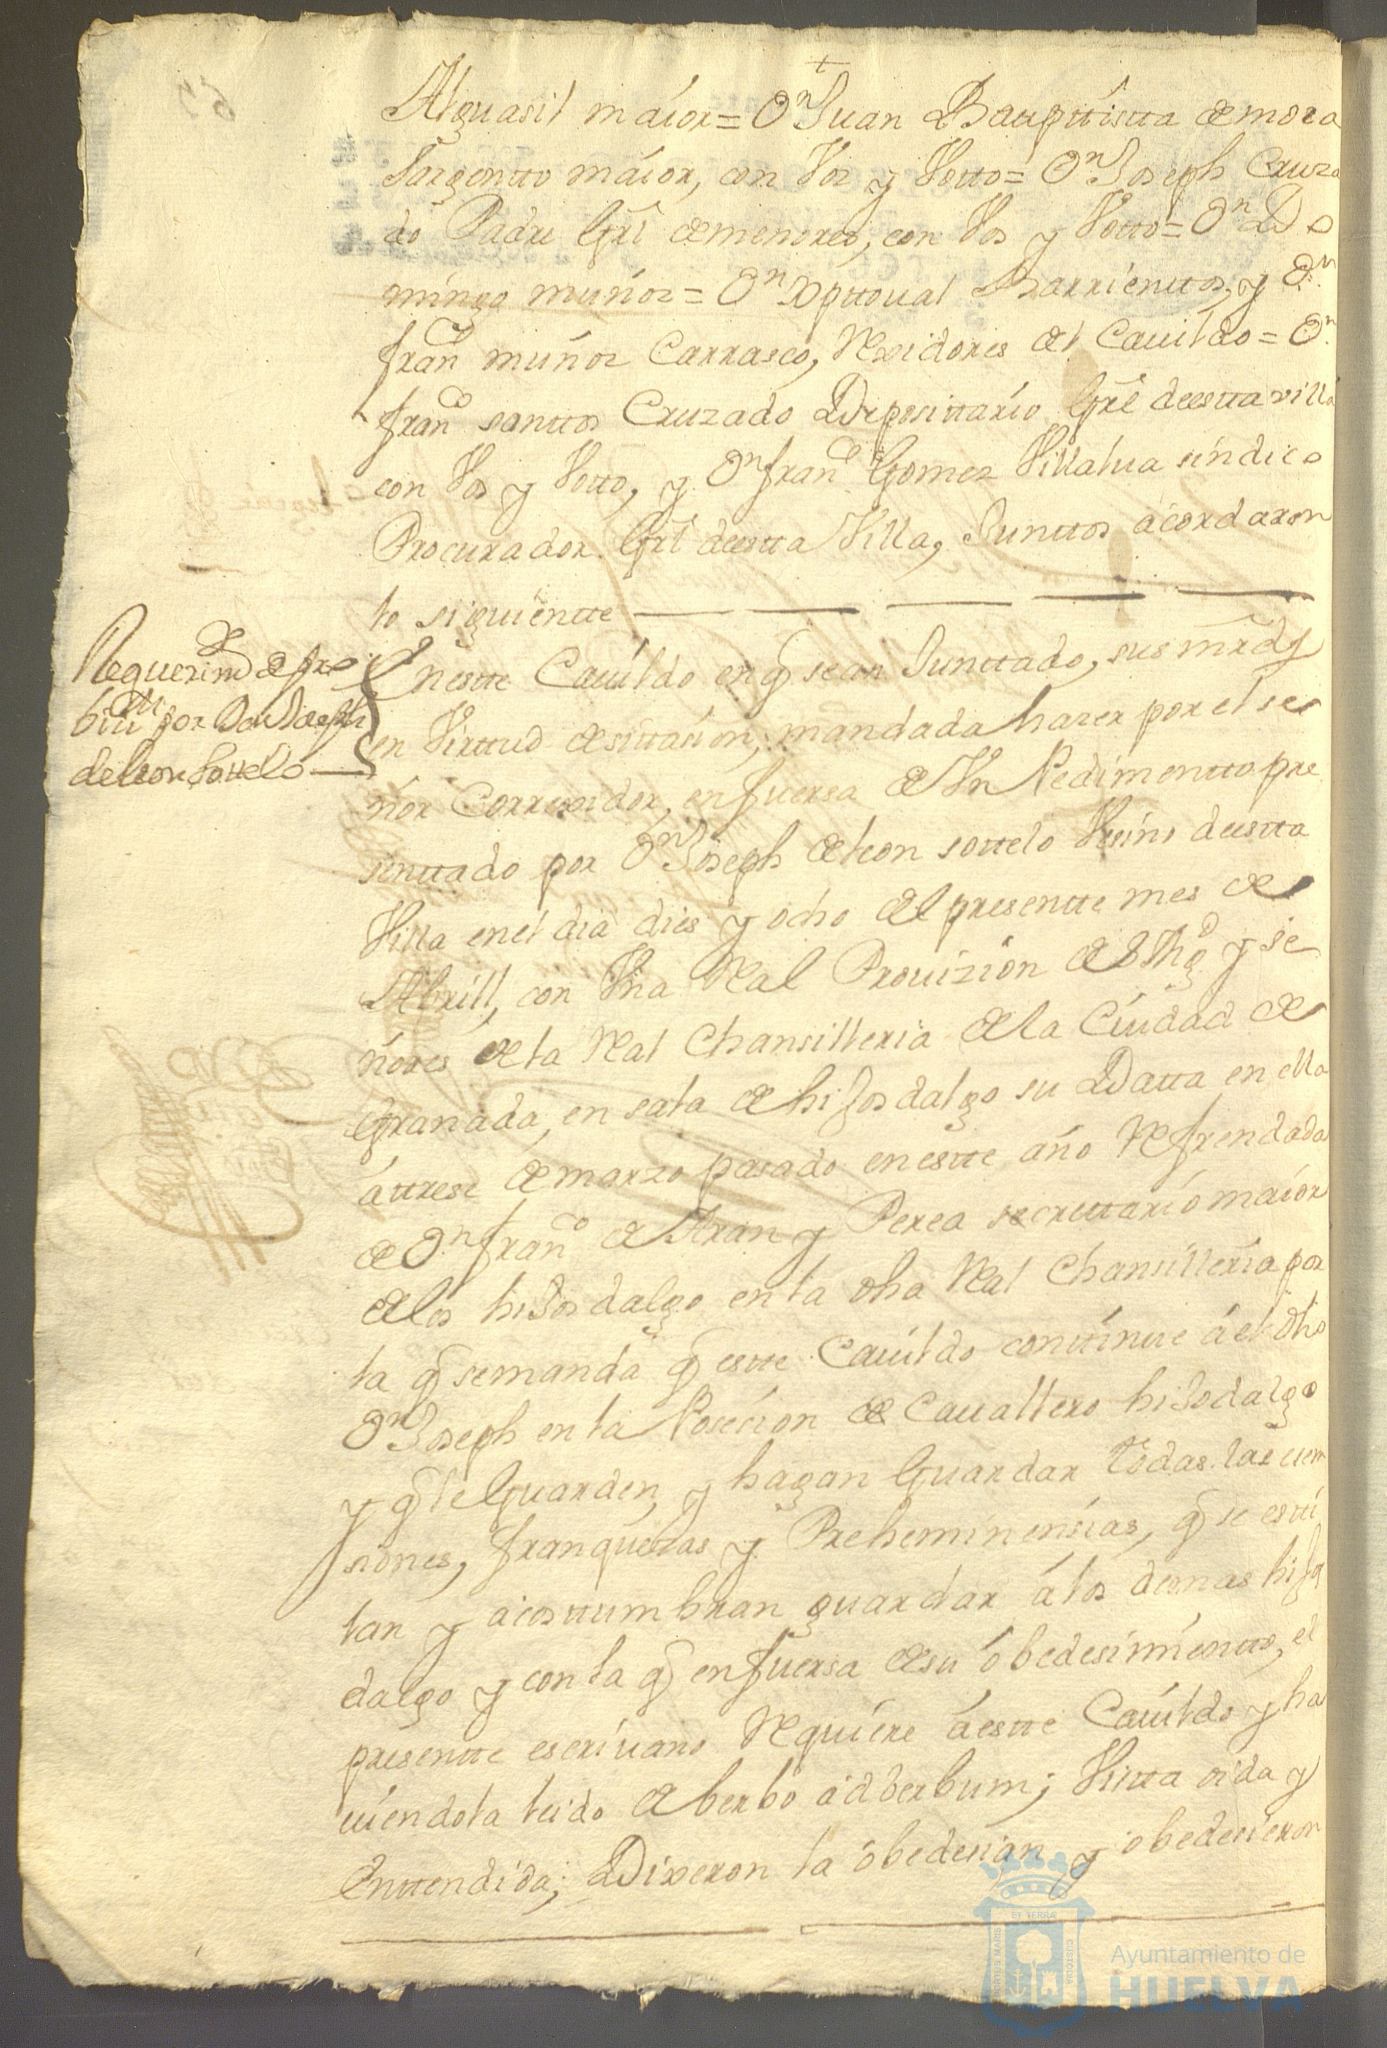 Alguasil maíor = Dn Juan Bauptistta de mora
Sargentto maíor, con Vos y Votto = Dn Joseph Cruza
do Padre Grl de menores, con Vos y Votto = Dn Do
mingo muños = Dn Xpttoual Barrienttos, y Dn
franco muños Carrasco, Rexidores del Cauildo = Dn
franco santtos Cruzado Deposittario Grl deestta villa
con Vos y Votto, y Dn franco Gomez Villalua síndico
Procurador Grl deestta Villa, Junttos ácordaron
lo siguientte
Requerimto de
por Dn Joseph
de leon sottelo
Enestte Cauíldo en q se an Junttado, sus mrds
en Virttud de sittasíon, mandada hazer por el se
ñor Correxidor, en fuersa de Vn Pedimentto pre
senttado por Dn Joseph de leon sottelo Vesino deestta
Villa en el dia dies y ocho del presentte mes de
Abrill, con Vna Real Prouizíon de y se
ñores de la Real Chansilleria de la Ciudad de
Granada, en sala de hijosdalgo su Datta en ella
á ttrese de marzo pasado en estte año Refrendada
de Dn franco de Aran y Perea secrettarío maíor
de los hiJosdalgo en la dha Real Chansillería por
la q se manda q estte Cauíldo conttinue á el dho
Dn Joseph en la Posecion de Cauallero hiJodalgo
y q le Guarden, y hagan Guardar todas las esem
siones, franquezas y Preheminensías, q se esti
lan y ácosttumbran guardar á los demas hijos
dalgo y con la q en fuersa de su óbedesimientto, el
presentte escriuano Requiere á estte Cauíldo y ha
uiendola leido de berbo ád berbum; Vistta oida y
Enttendida; Dixeron la óbedesian y óbedesieron
Ayuntamiento de
HUELVA